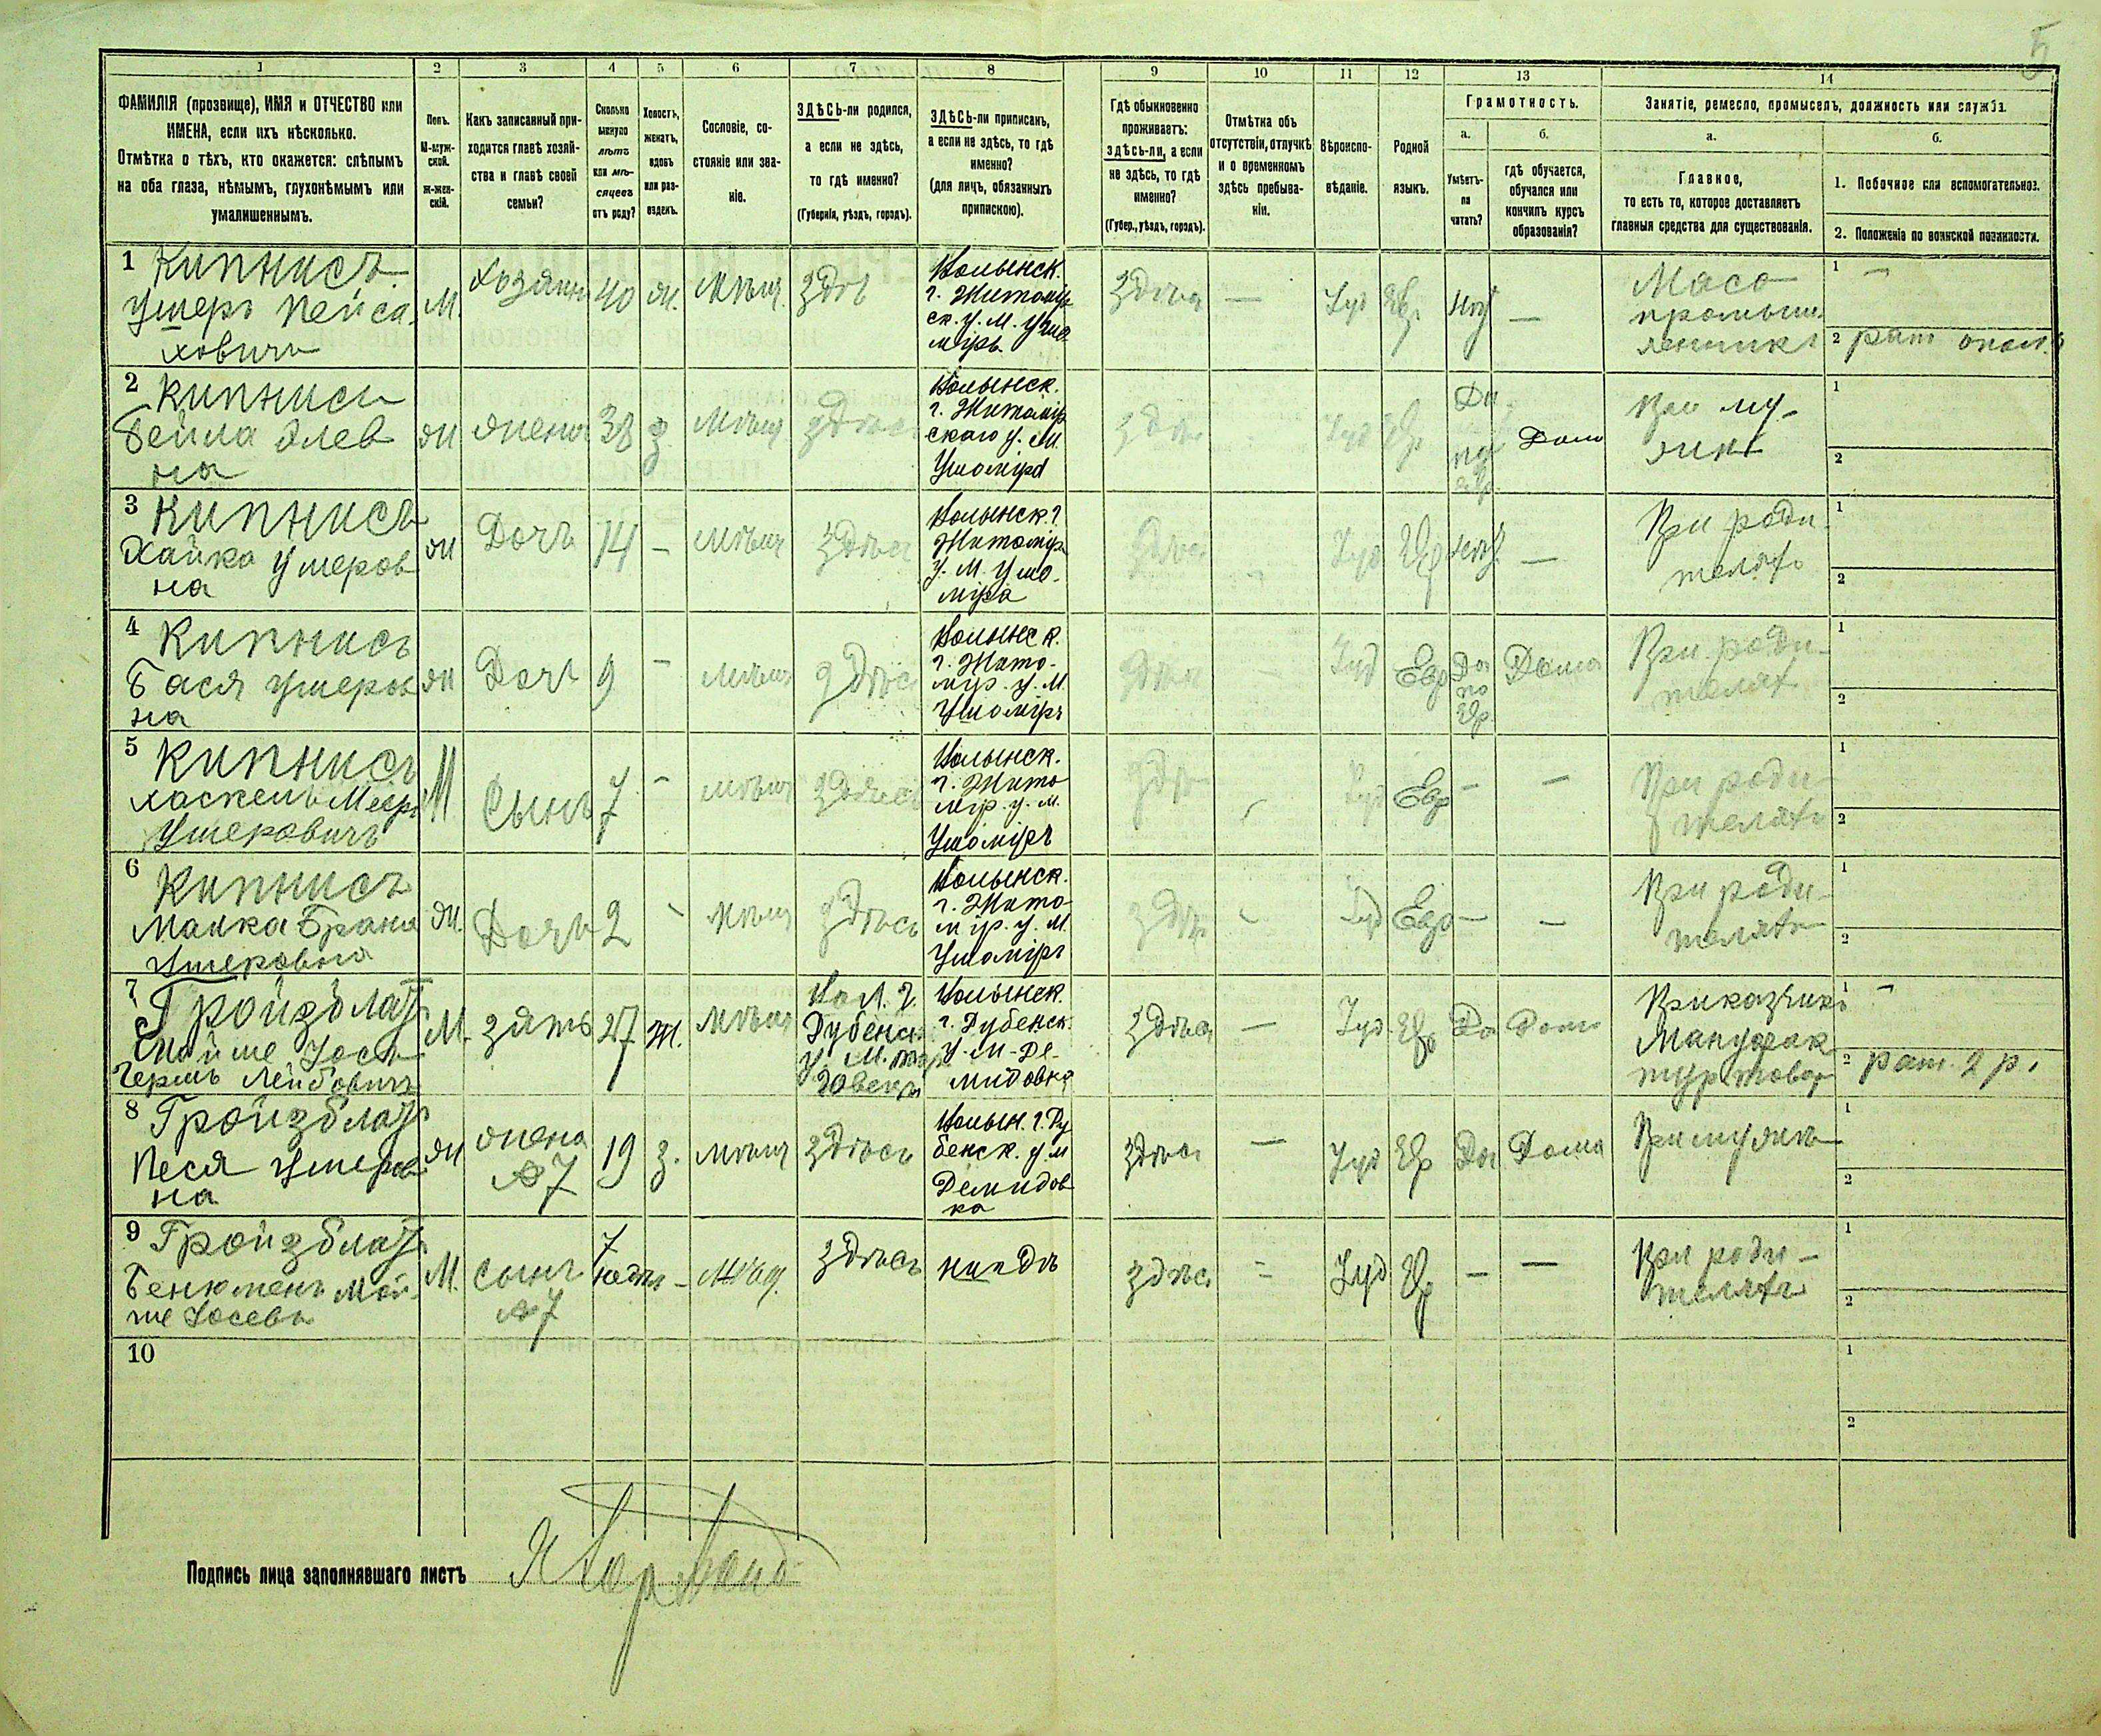 5
1
2
3
4
5
6
7
8
9
10
11
12
13
14
ФАМИЛІЯ (прозвище), ИМЯ и ОТЧЕСТВО или
ИМЕНА, если ихъ нѣсколько.
Отмѣтка о тѣхъ, кто окажется: слѣпымъ
на оба глаза, нѣмымъ, глухонѣмымъ или
умалишеннымъ.
Полъ.
М-муж-
ской.
ж-жен-
скій.
Какъ записанный при-
ходится главѣ хозяй-
ства и главѣ своей
семьи?
Сколько
минуло
лѣтъ
или мѣ-
сяцевъ
отъ роду?
Холостъ,
женатъ,
вдовъ
или раз-
веденъ.
Сословіе, со-
стояніе или зва-
ніе.
ЗДѢСЬ-ли родился,
а если не здѣсь,
то гдѣ именно?
(Губернія, уѣздъ, городъ).
ЗДѢСЬ-ли приписанъ,
а если не здѣсь, то гдѣ
именно?
(для лицъ, обязанныхъ
припискою).
Гдѣ обыкновенно
проживаетъ:
здѣсь-ли, а если
не здѣсь, то гдѣ
именно?
(Губер., уѣздъ, городъ).
Отмѣтка объ
отсутствіи, отлучкѣ
и о временномъ
здѣсь пребыва-
ніи.
Вѣроиспо-
вѣданіе.
Родной
языкъ.
Грамотность.
а.
Умѣетъ-
ли
читать?
б.
гдѣ обучается,
обучался или
кончилъ курсъ
образованія?
Занятіе, ремесло, промыселъ, должность или служба.
а.
Главное,
то есть то, которое доставляетъ
главныя средства для существованія.
б.
1. Побочное или вспомогательное.
2. Положеніе по воинской повинности.
1 Кипнисъ
Ушеръ Пейса-
ховичъ
М.
Хозяинъ
40
Ж.
Мѣщ.
Здѣсь
Волынск.
г. Житомір
ск. у. М. Ушо
міръ
Здѣсь
—
Іуд
Евр
Нѣт
—
Мясо
промыш
ленникъ
1 —
2 рат ополч.
2 Кипнисъ
Бейла
на
Ж
Жена
38
З
Мѣщ
Здѣсь
Волынск.
г. Житомір
скаго у. М.
Ушомір
Здѣсь
Іуд
Евр
Да
по
евр.
Дома
При му-
жѣ
1
2
3 Кипнисъ
Хайка Ушеров
на
Ж
Дочь
14
—
Мѣщ
Здѣсь
Волынск. г.
Житомір
у. М. Ушо-
міра
Здѣсь
Іуд
Евр
Нѣт
—
При роди-
теляхъ
1
2
4 Кипнисъ
Бася Ушеров
на
Ж
Дочь
9
—
Мѣщ
Здѣсь
Волынск.
г. Жито-
мір. у. М.
Ушоміръ
Здѣсь
—
Іуд
Евр
Да
по
Евр.
Дома
При роди-
теляхъ
1
2
5 Кипнисъ
Хаскель Меер
Ушеровичъ
М
Сынъ
7
—
Мѣщ
Здѣсь
Волынск.
г. Жито
мір. у. М.
Ушоміръ
Здѣсь
Іуд
Евр
—
—
При роди-
теляхъ
1
2
6 Кипнисъ
Малка Брана
Ушеровна
Ж.
Дочь
2
-
Мѣщ
Здѣсь
Волынск.
г. Жито-
мір. у. М.
Ушоміръ
Здѣсь
Іуд
Евр
—
—
При роди-
теляхъ
1
2
7 Гройзблат
Мойше Іось
Гершъ Лейбовичъ
М.
Зять
27
Ж.
Мѣщ
Вол. г.
Дубенск.
у. М.
Волынск.
г. Дубенск.
у. М. Де-
мидовка
Здѣсь
—
Іуд
Евр
Да
Дома
Приказчикъ
Мануфак
тур. товар
1 —
2 рат. 2 р.
8 Гройзблат
Песя Ушеров
на
Ж
Жена
№ 7
19
З.
Мѣщ
Здѣсь
Волын. г. Ду
бенск. у. м
Демидов
ка
Здѣсь
—
Іуд
Евр
Да
Дома
При мужѣ
1
2
9 Гройзблат
Бенюменъ Мой-
ше Іосевъ
М.
Сынъ
№ 7
7
недѣл
—
Мѣщ.
Здѣсь
нигдѣ
Здѣсь
Іуд
Евр
—
—
При роди-
теляхъ
1
2
10
1
2
Подпись лица заполнявшаго листъ